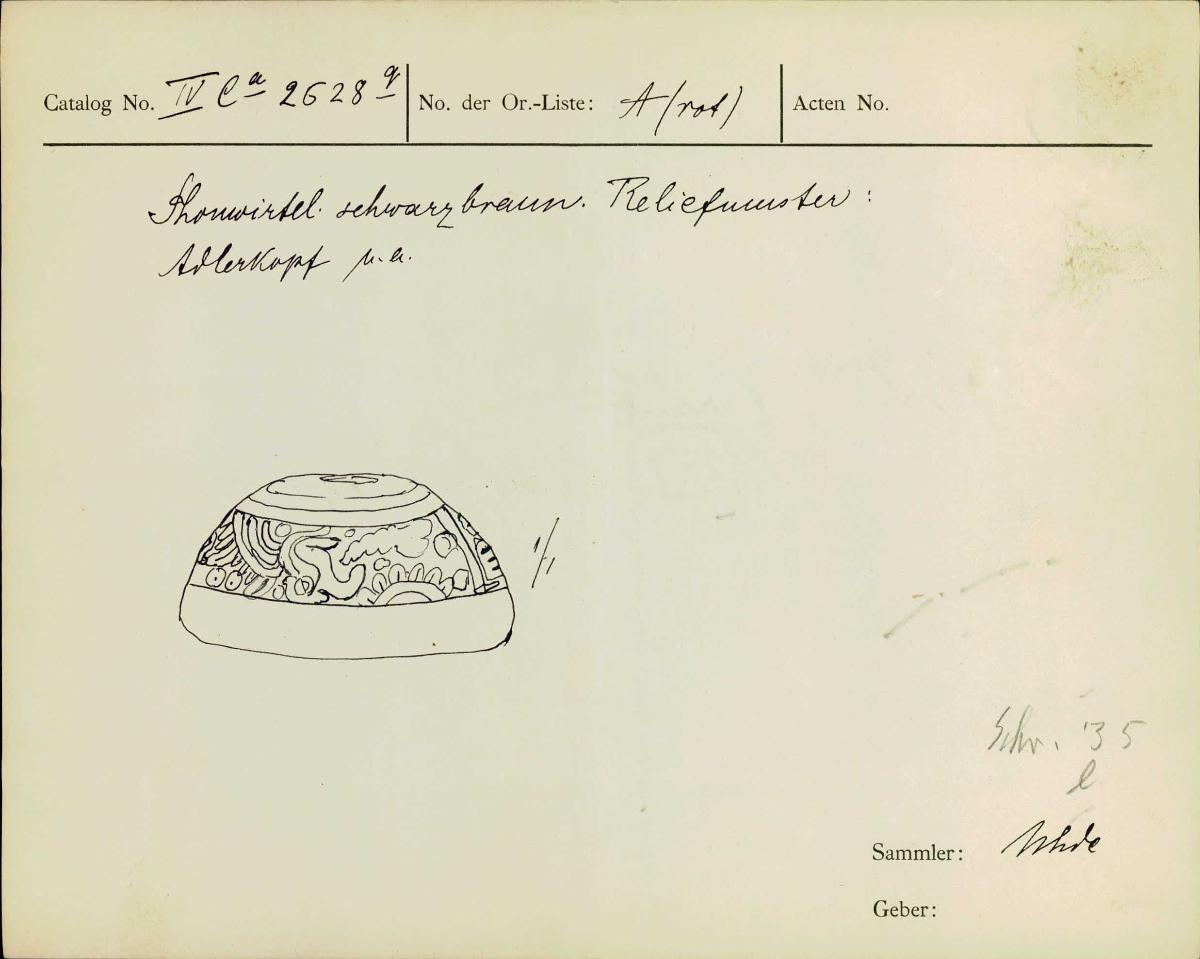 Catalog No. IV Ca 2628 q No. der Or.-Liste: A (rot) Acten No.
Thonwirtel. schwarzbraun. Reliefmuster:
Adlerkopf u. a.
1/1
Schr. 35
l
Sammler: Uhde
Geber: